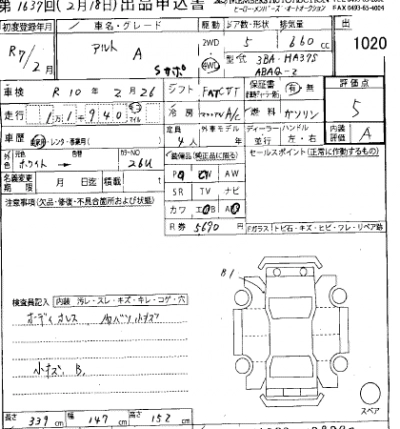 第1637回(2月18日)出品申込書
FAX 0493-65-4004
初度登録年月 車名・グレード 駆動 ドア数・形状 排気量 出
R7/2月 アルト A Sサポ 2WD 4WD 5 660 cc 1020
型式 3BA-HA37S
ABAQ-Z
車検 R10年2月26 シフト FAT CVT 保証書 有 無 評価点
5
走行 1万1千940 マイル 冷房 A/C 燃料 ガソリン 内装評価 A
車歴 自家用・レンタ・事業用( ) 定員 4人 外車モデル 年 ディーラー 並行 ハンドル 左・右
外色 元色 ホワイト→ 色替 カラーNO 26U 装備品(純正品に限る) セールスポイント(正常に作動するもの)
PS PW AW
名義変更期限 月 日迄 積載 t SR TV ナビ
注意事項(欠品・修復・不具合箇所および状態) カワ エアB AB
R券 5690 円 Fガラス トビ石・キズ・ヒビ・ワレ・リペア跡
B1
検査員記入 内装 汚レ・スレ・キズ・キレ・コゲ・穴
ボディカレス 内パツ小キズ
小キズ, B.
スペア
長さ 339 cm 幅 147 cm 高さ 152 cm